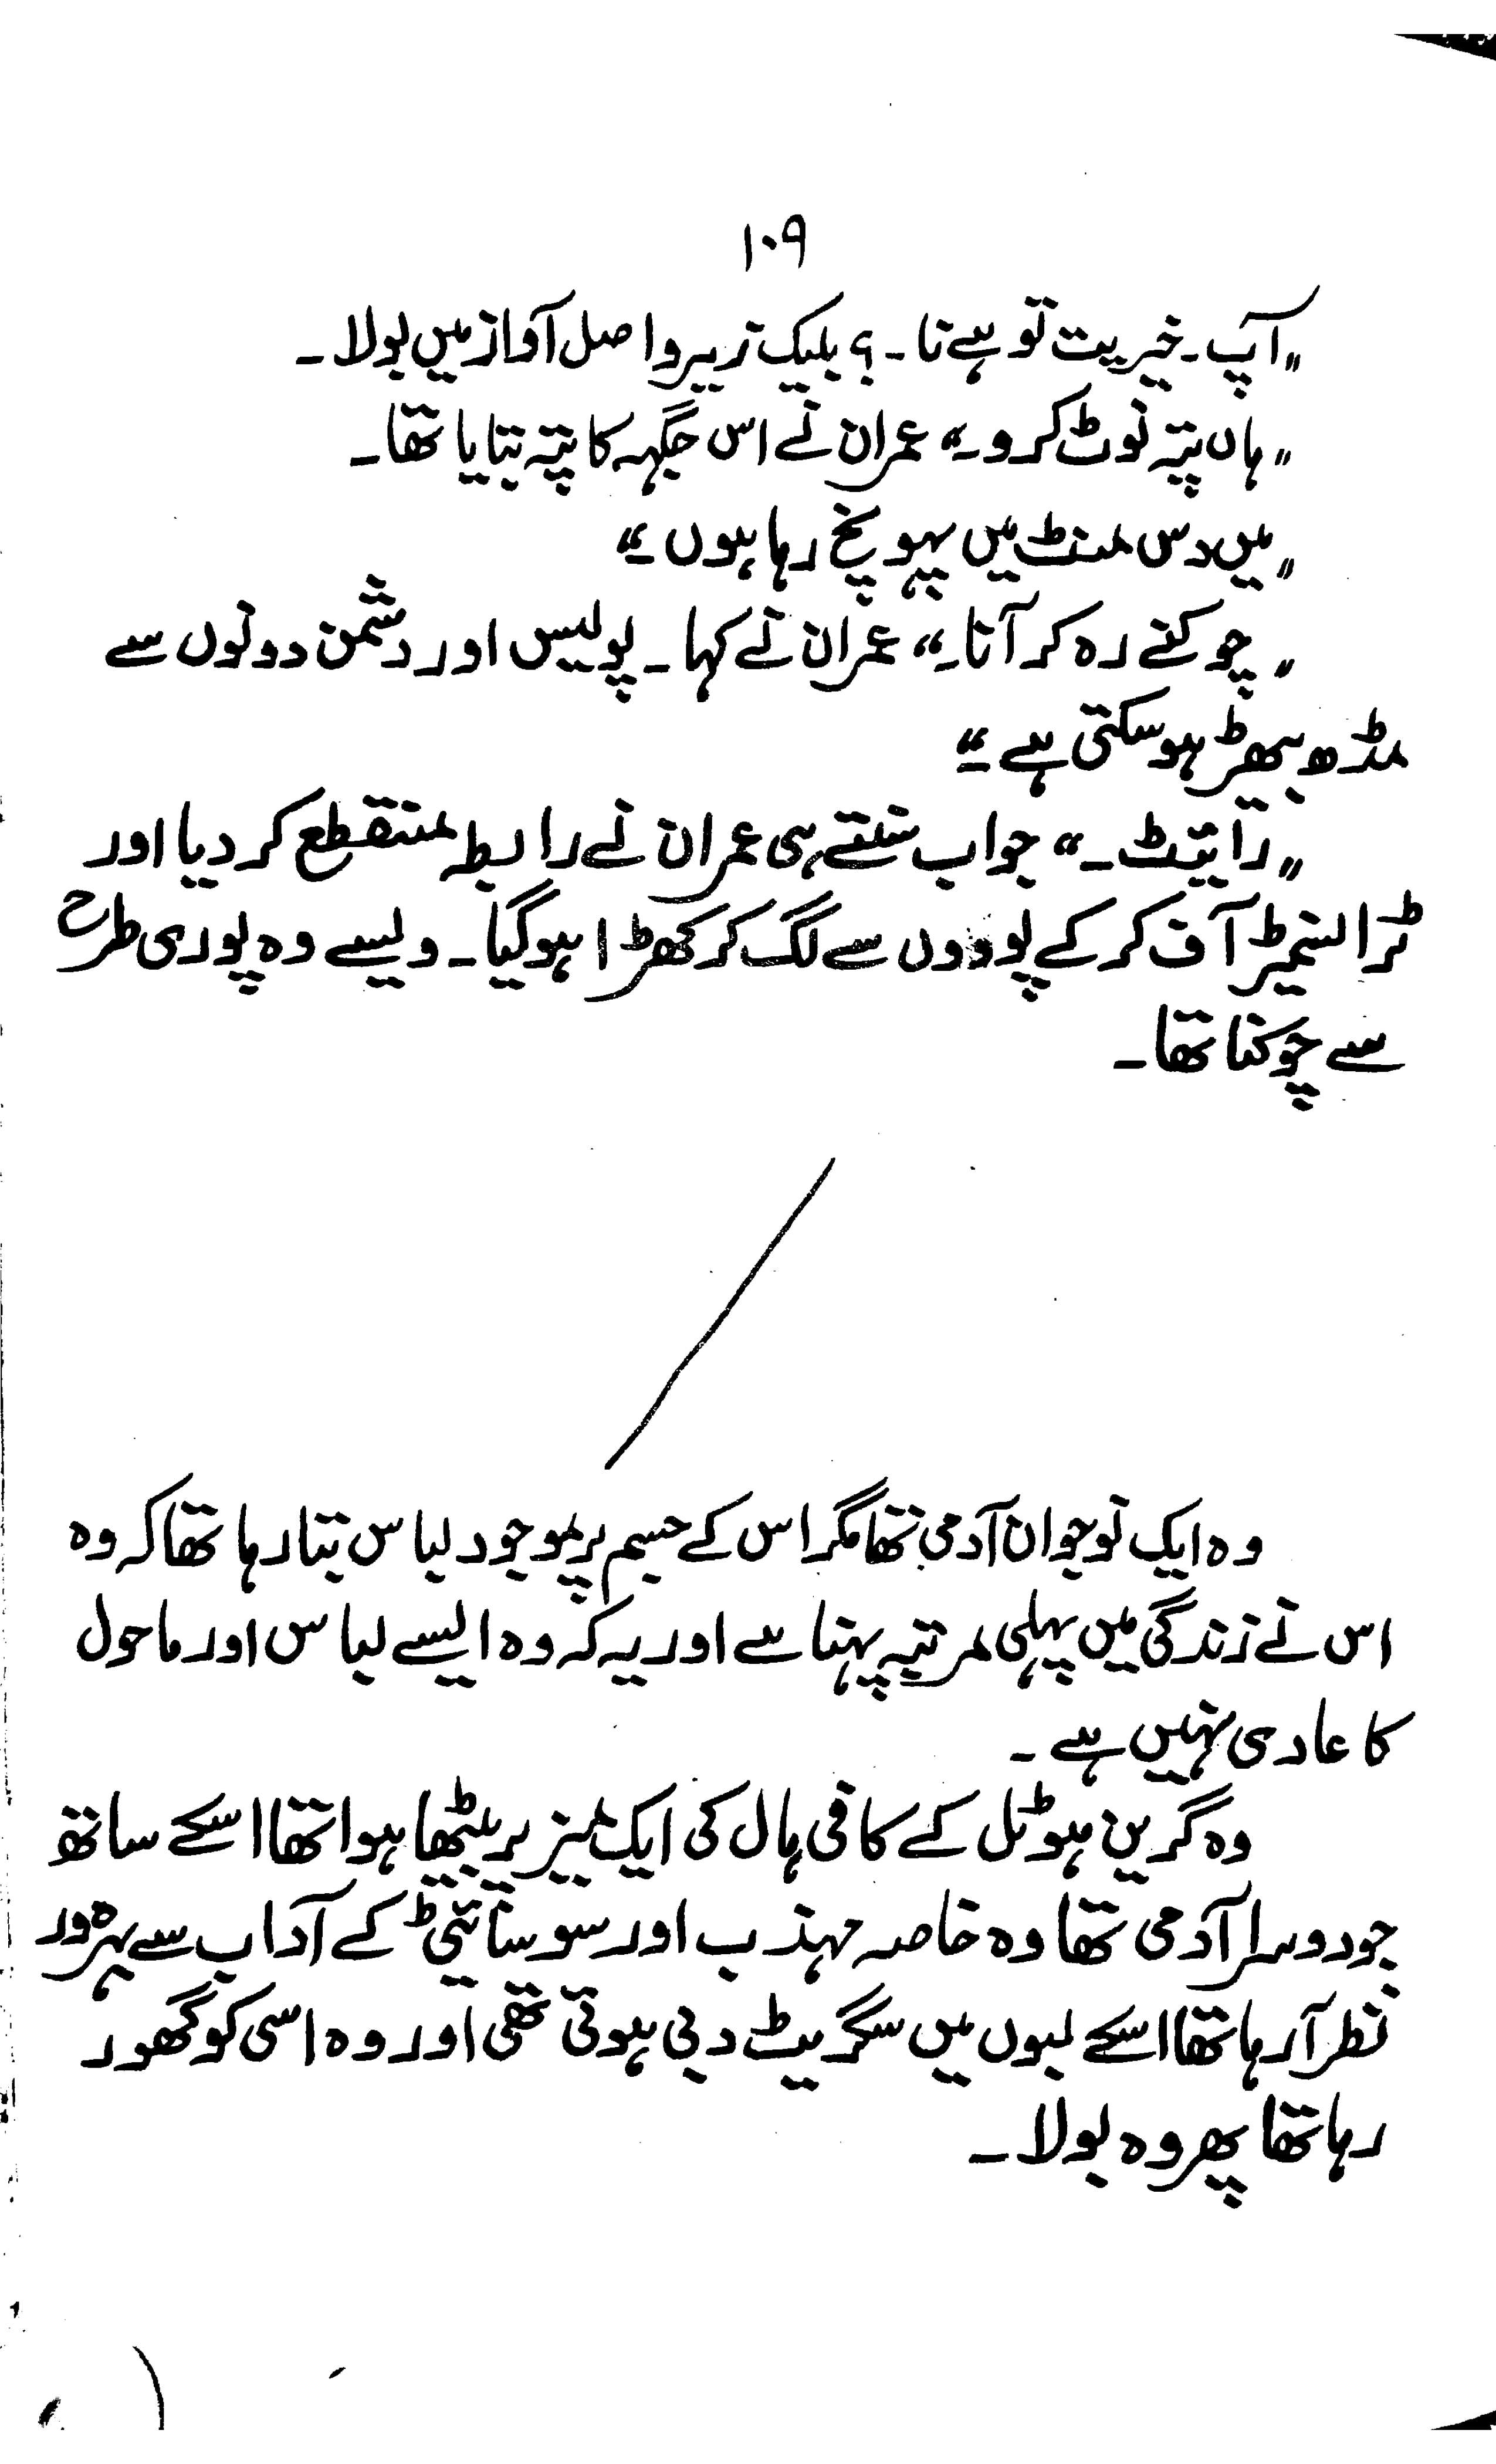 ۱۰۹
"آپ۔ خیریت تو ہے نا۔؟ بلیک زیرو اصل آواز میں بولا۔
"ہاں پتہ نوٹ کرو۔" عمران نے اس جگہہ کا پتہ بتایا تھا۔
"میں دس منٹ میں پہونچ رہا ہوں۔"
"چوکنے رہ کر آنا۔" عمران نے کہا۔ پولیس اور دشمن دونوں سے
مڈھ بھیڑ ہو سکتی ہے۔"
"رائیٹ۔" جواب سنتے ہی عمران نے رابطہ منقطع کر دیا اور
ٹرانسمیٹر آف کر کے پودوں سے لگ کر کھڑا ہو گیا۔ ویسے وہ پوری طرح
سے چوکنا تھا۔
وہ ایک نوجوان آدمی تھا مگر اس کے جسم پر موجود لباس بتا رہا تھا کہ وہ
اس نے زندگی میں پہلی مرتبہ پہنا ہے اور یہ کہ وہ ایسے لباس اور ماحول
کا عادی نہیں ہے۔
وہ گرین ہوٹل کے کافی ہال کی ایک میز پر بیٹھا ہوا تھا اسکے ساتھ
جو دوسرا آدمی تھا وہ خاصہ مہذب اور سوسائیٹی کے آداب سے بہرہ ور
نظر آ رہا تھا اسکے لبوں میں سگریٹ دبی ہوئی تھی اور وہ اسی کو گھور
رہا تھا پھر وہ بولا۔